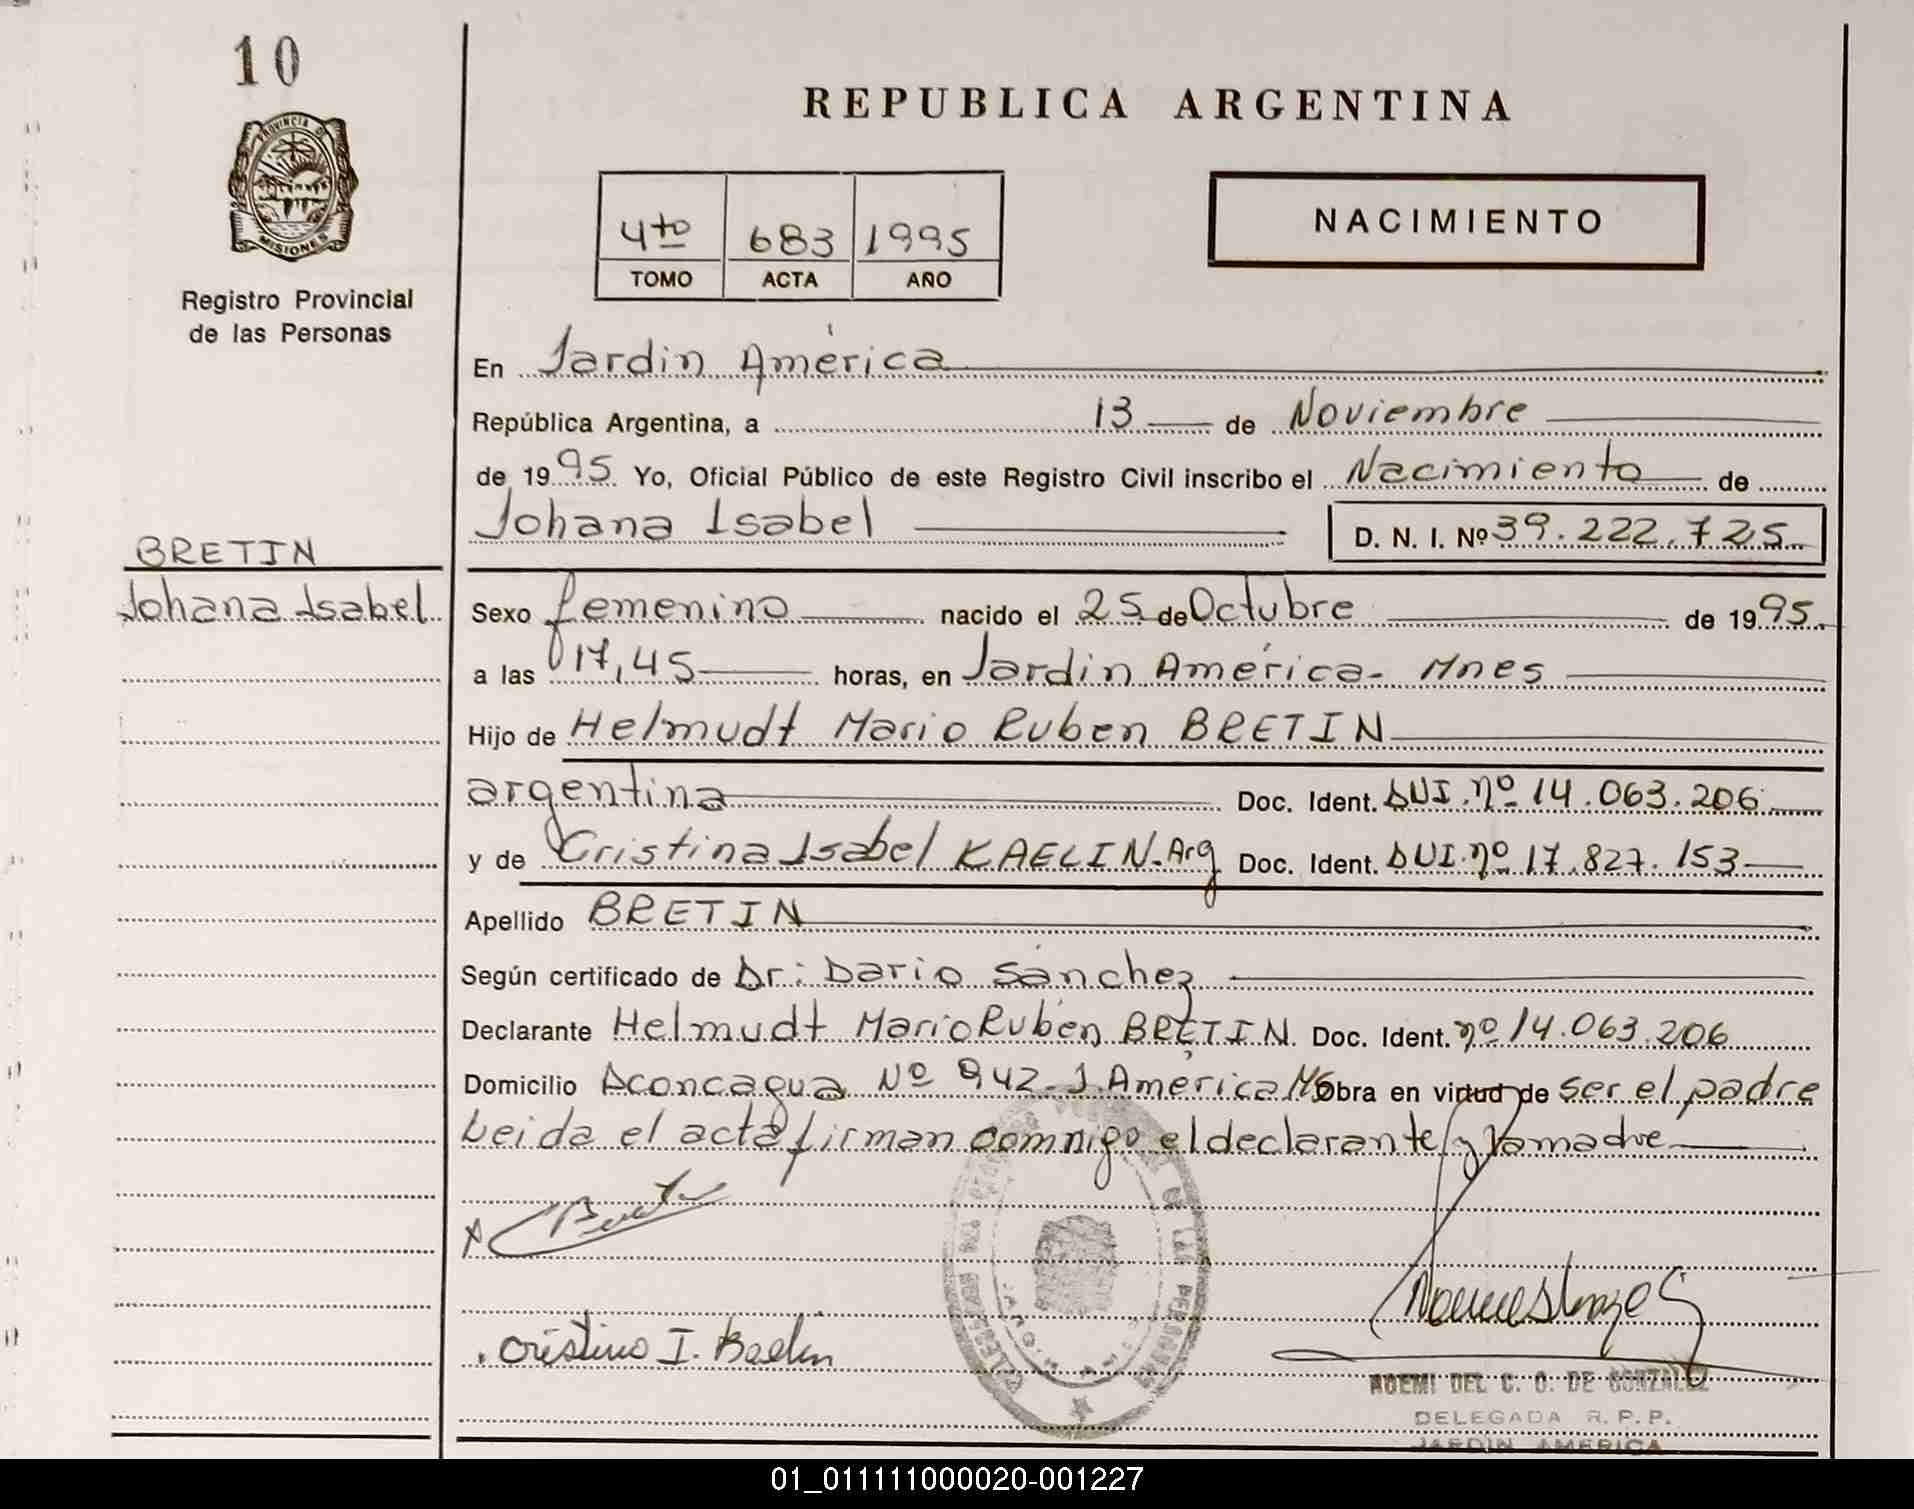 10
PROVINCIA DE
MISIONES
Registro Provincial
de las Personas
BRETIN
Johana Isabel
REPUBLICA ARGENTINA
4to 683 1995
TOMO ACTA AÑO
NACIMIENTO
En Jardin América
República Argentina, a 13 de Noviembre
de 1995 Yo, Oficial Público de este Registro Civil inscribo el Nacimiento de
Johana Isabel D. N. I. Nº 39.222.725
Sexo femenino nacido el 25 de Octubre de 1995
a las 17,45 horas, en Jardin América - Mnes
Hijo de Helmudt Mario Ruben BRETIN
argentina Doc. Ident. DUI. nº 14.063.206
y de Cristina Isabel KAELIN - Arg Doc. Ident. DUI. nº 17.827.153
Apellido BRETIN
Según certificado de Dr: Dario Sánchez
Declarante Helmudt Mario Rubén BRETIN Doc. Ident. nº 14.063.206
Domicilio Aconcagua Nº 942 - J. América Ms Obra en virtud de ser el padre
Leida el acta firman comnigo el declarante y la madre
Cristina I. Kaelin
NOEMI DEL C. O. DE GONZALEZ
DELEGADA R. P. P.
JARDIN AMERICA
01_011111000020-001227